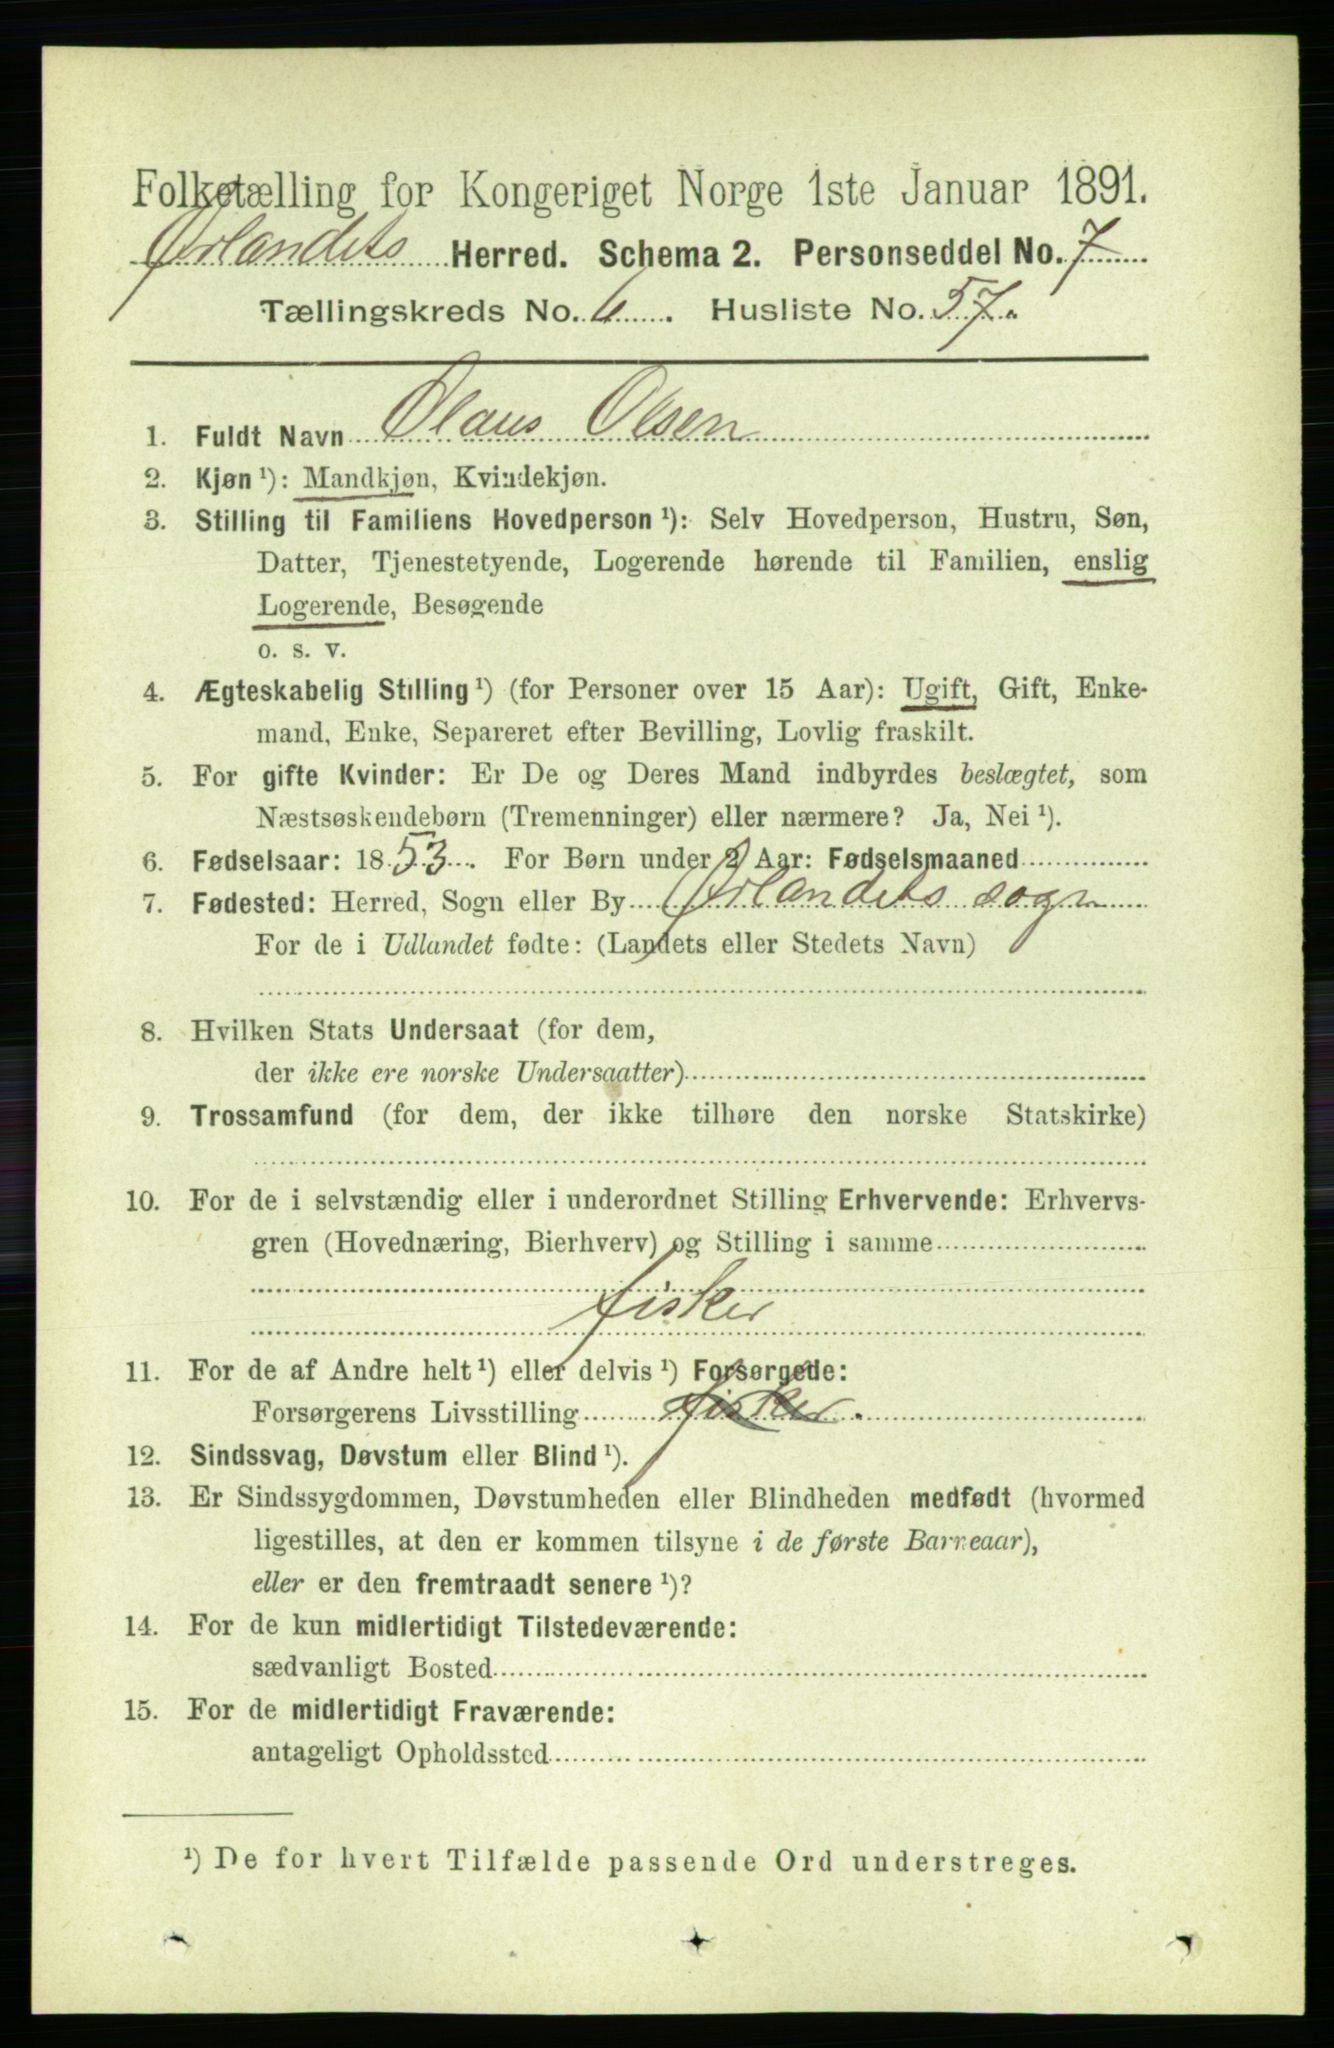 Folketælling for Kongeriget Norge 1ste Januar 1891.
Ørlandets Herred. Schema 2. Personseddel No. 7
Tællingskreds No. 6. Husliste No. 57.
1. Fuldt Navn Olaus Olsen
2. Kjøn ¹): Mandkjøn, Kvindekjøn.
3. Stilling til Familiens Hovedperson ¹): Selv Hovedperson, Hustru, Søn,
Datter, Tjenestetyende, Logerende hørende til Familien, enslig
Logerende, Besøgende
o. s. v.
4. Ægteskabelig Stilling ¹) (for Personer over 15 Aar): Ugift, Gift, Enke-
mand, Enke, Separeret efter Bevilling, Lovlig fraskilt.
5. For gifte Kvinder: Er De og Deres Mand indbyrdes beslægtet, som
Næstsøskendebørn (Tremenninger) eller nærmere? Ja, Nei ¹).
6. Fødselsaar: 1853. For Børn under 2 Aar: Fødselsmaaned
7. Fødested: Herred, Sogn eller By Ørlandets sogn
For de i Udlandet fødte: (Landets eller Stedets Navn)
8. Hvilken Stats Undersaat (for dem,
der ikke ere norske Undersaatter)
9. Trossamfund (for dem, der ikke tilhøre den norske Statskirke)
10. For de i selvstændig eller i underordnet Stilling Erhvervende: Erhvervs-
gren (Hovednæring, Bierhverv) og Stilling i samme
fisker
11. For de af Andre helt ¹) eller delvis ¹) Forsørgede:
Forsørgerens Livsstilling fisker.
12. Sindssvag, Døvstum eller Blind ¹).
13. Er Sindssygdommen, Døvstumheden eller Blindheden medfødt (hvormed
ligestilles, at den er kommen tilsyne i de første Barneaar),
eller er den fremtraadt senere ¹)?
14. For de kun midlertidigt Tilstedeværende:
sædvanligt Bosted
15. For de midlertidigt Fraværende:
antageligt Opholdssted
¹) De for hvert Tilfælde passende Ord understreges.